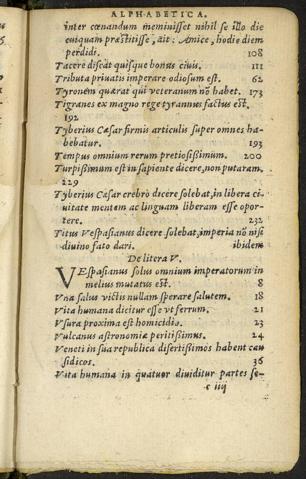 ALPHABETICA.
inter cœnandum meminisset nihil se illo die
cuiquam præstitisse, ait: Amice, hodie diem
perdidi. 108
Tacere discat quisque bonus ciuis. 111
Tributa priuatis imperare odiosum est. 62
Tyronem quærat qui veteranum nõ habet. 173
Tigranes ex magno rege tyrannus factus est.
192
Tyberius Cæsar firmis articulis super omnes ha-
bebatur. 193
Tempus omnium rerum pretiosissimum. 200
Turpissimum est in sapiente dicere, non putaram.
229
Tyberius Cæsar crebrò dicere solebat, in libera ci-
uitate mentem ac linguam liberam esse opor-
tere. 232
Titus Vespasianus dicere solebat, imperia nõ nisi
diuino fato dari. ibidem
De litera V.
VEspasianus solus omnium imperatorum in
melius mutatus est. 8
Vna salus victis nullam sperare salutem. 18
Vita humana dicitur esse vt ferrum. 21
Vsura proxima est homicidio. 23
Vulcanus astronomiæ peritissimus. 24
Veneti in sua republica disertissimos habent cau
sidicos. 36
Vita humana in quatuor diuiditur partes se-
c iiij